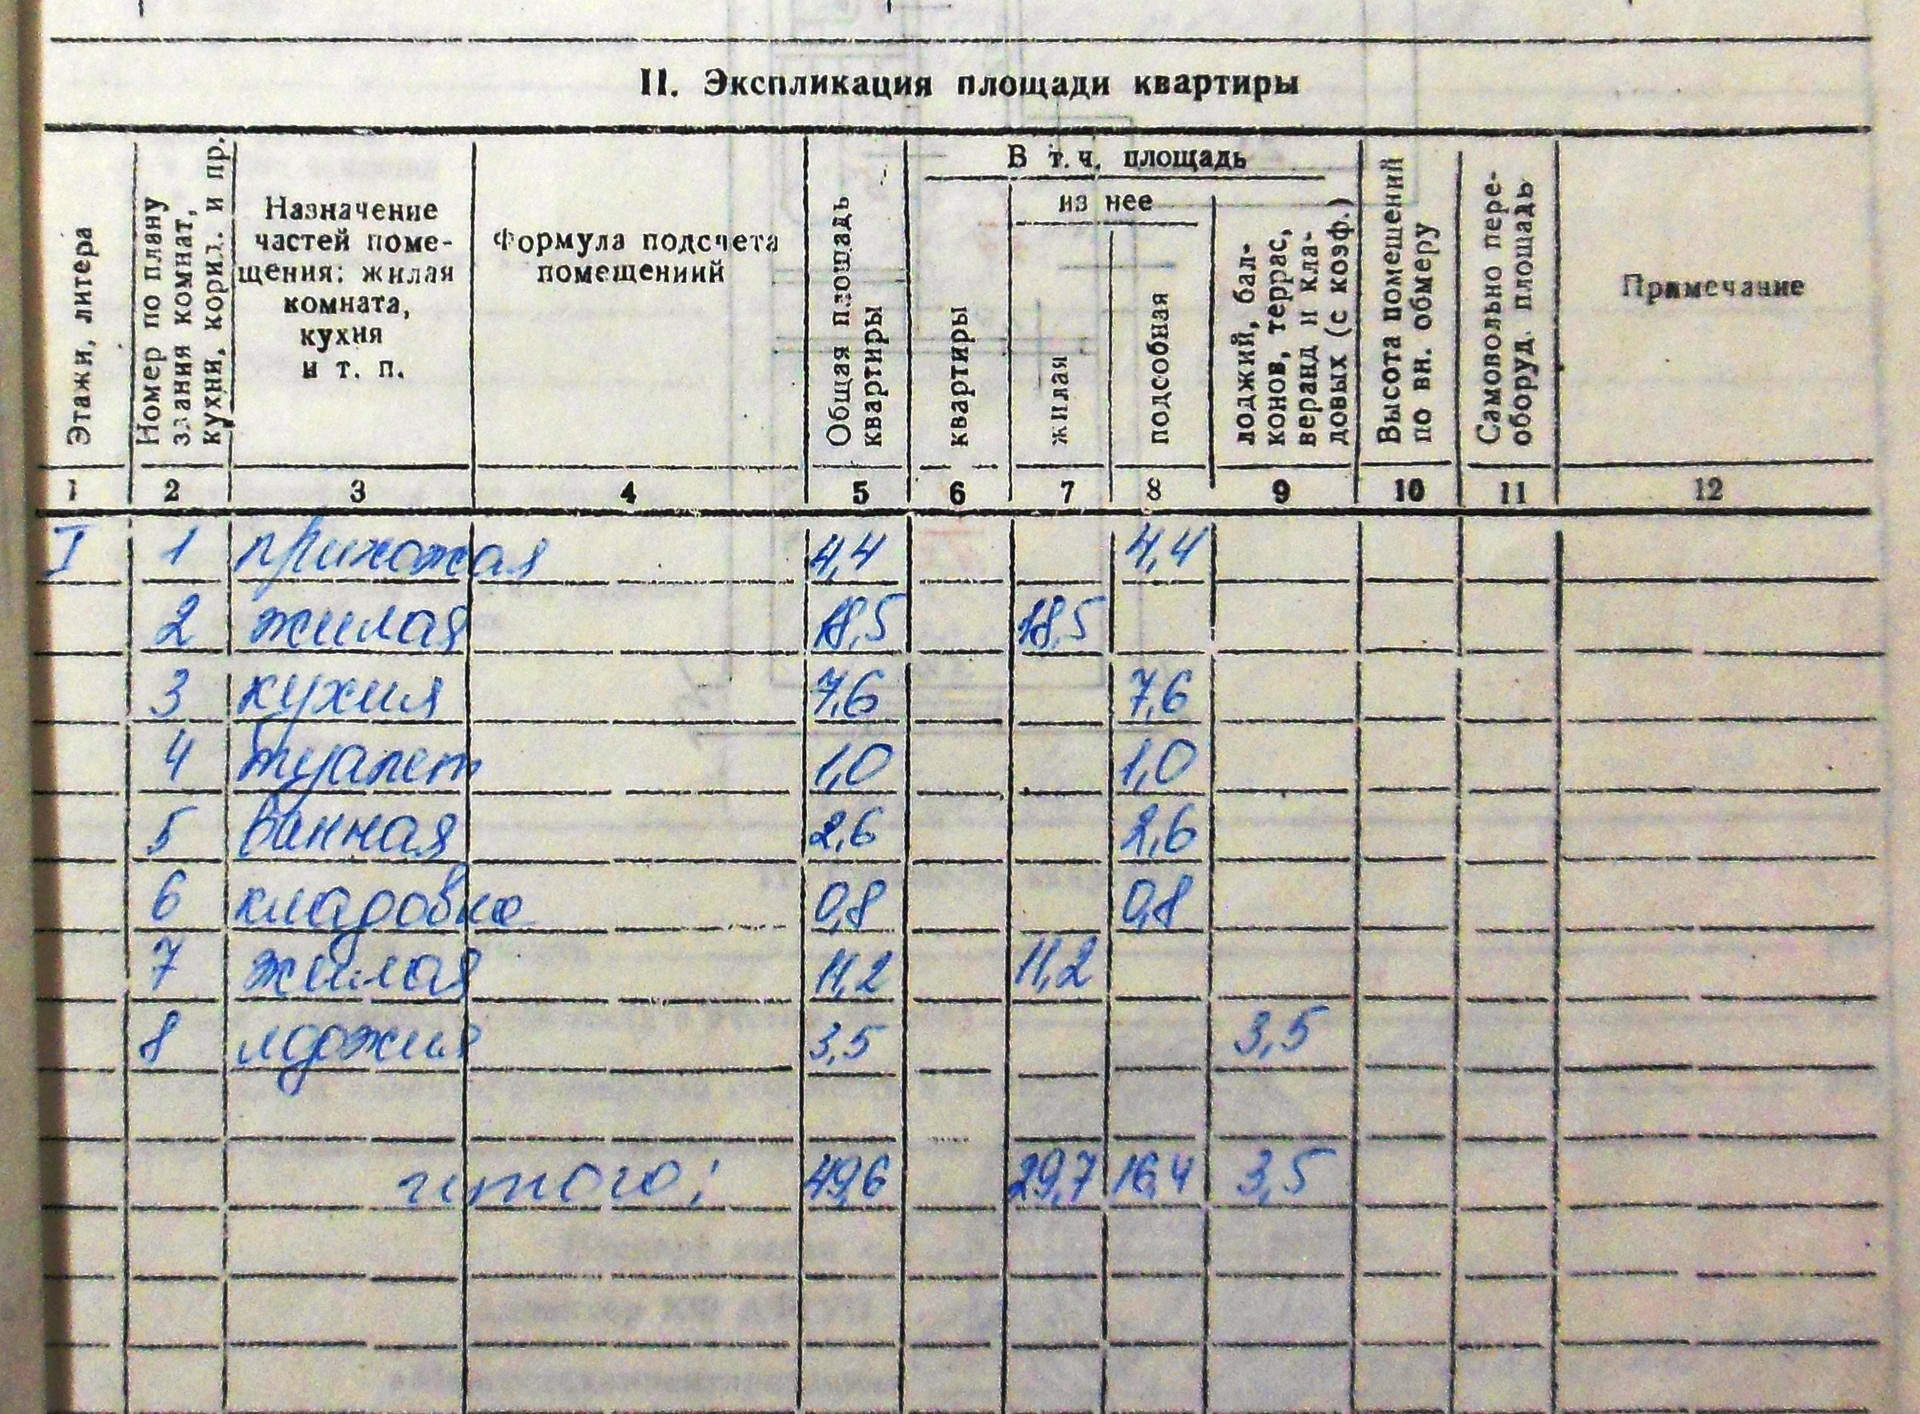 II. Экспликация площади квартиры
Этажи, литера
Номер по плану
здания комнат,
кухни, корид. и пр.
Назначение
частей поме-
щения: жилая
комната,
кухня
и т. п.
Формула подсчета
помещениий
Общая площадь
квартиры
В т. ч. площадь
квартиры
из нее
жилая
подсобная
лоджий, бал-
конов, террас,
веранд и кла-
довых (с коэф.)
Высота помещений
по вн. обмеру
Самовольно пере-
оборуд. площадь
Примечание
1 2 3 4 5 6 7 8 9 10 11 12
I 1 прихожая 4,4 4,4
2 жилая 18,5 18,5
3 кухня 7,6 7,6
4 туалет 1,0 1,0
5 ванная 2,6 2,6
6 кладовка 0,8 0,8
7 жилая 11,2 11,2
8 лоджия 3,5 3,5
итого: 49,6 29,7 16,4 3,5